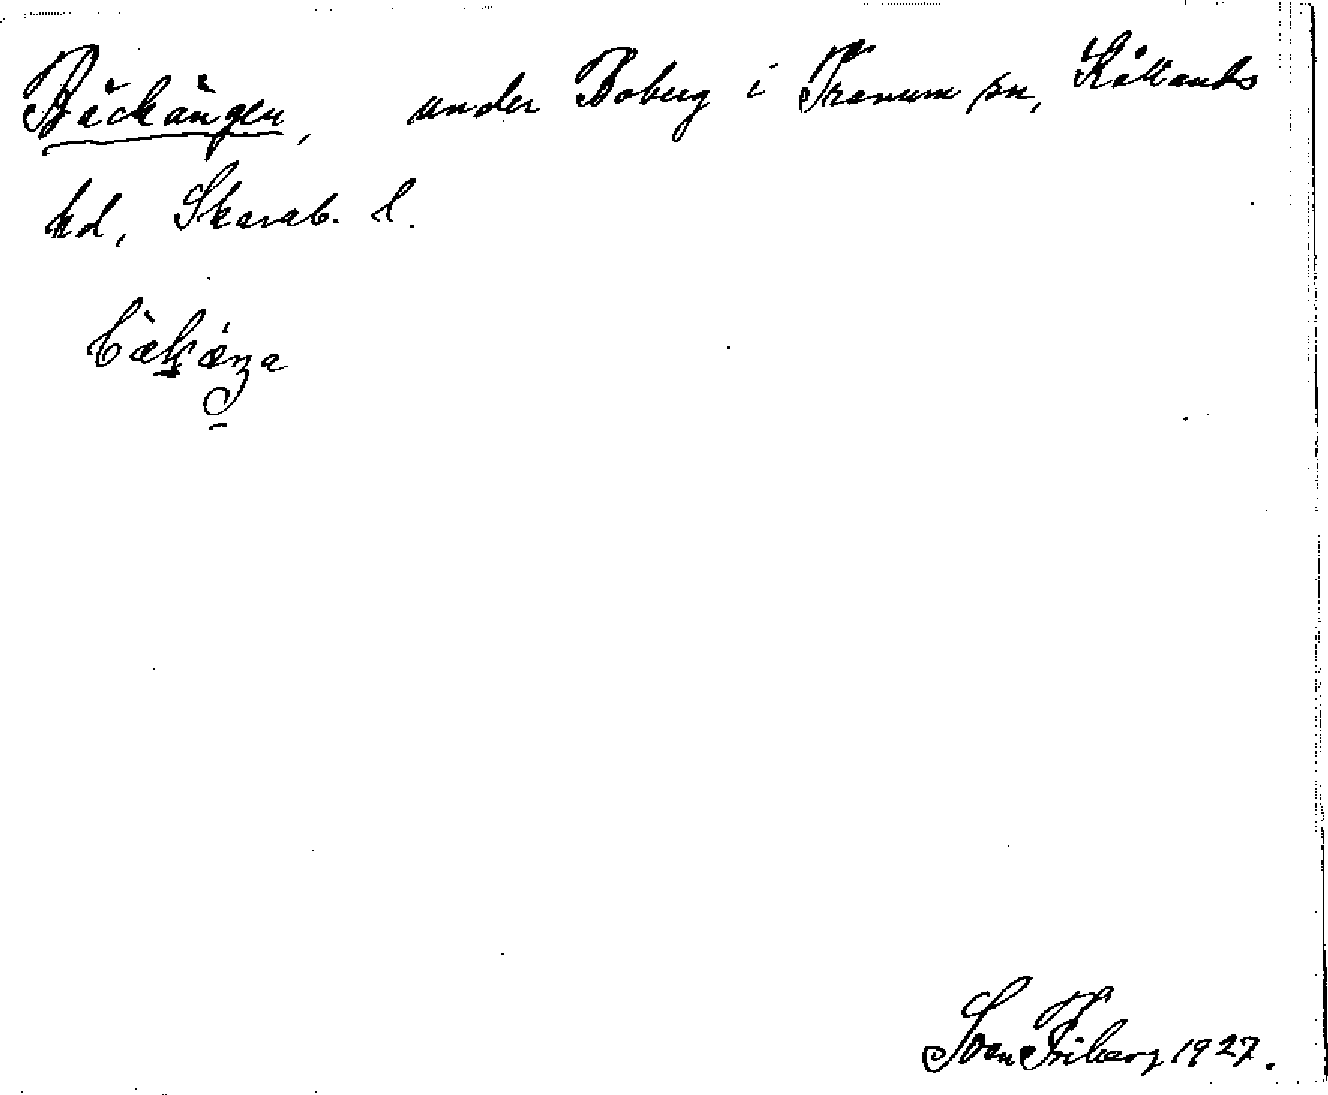 Bäckängen, under Boberg i Tranum sn, Kållands
hd, Skarab. l.
Sven Friberg 1927.